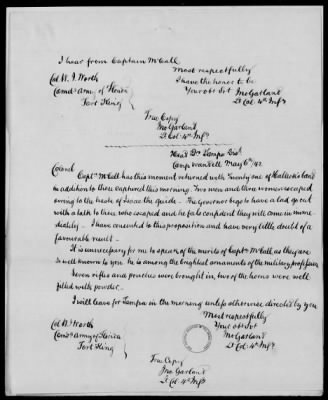 I hear from Captain McCall.
Most respectfully
I have the honor to be
Col W. J. Worth
Your obt Svt
Comdg Army of Florida
Jno Garland
Fort King
Lt Col. 4th Infy
True Copy
Jno Garland
Lt Col. 4th Infy
Head Qrs Tampa Dist
Camp Wandell May 6th /42
Colonel
Captn McCall has this moment returned with Twenty one of Hallecks band
in addition to those captured this morning. Two men and three women escaped
owing to the haste of the guide. The Governor begs to have a lad go out
with a talk to those who escaped and he felt confident they will come in imme
diately. I have consented to this proposition and have very little doubt of a
favourable result.
It is unnecessary for me to speak of the merits of Captn McCall, as they are
so well known to you he is among the brightest ornaments of the military profession
Seven rifles and pouches were brought in, two of the horns were well
filled with powder.
I will leave for Tampa in the morning unless otherwise directed by you
Most respectfully
Col W. J. Worth
Your obt Svt
Comdg Army of Florida
Jno Garland
Fort King
Lt Col. 4th Infy
True Copy
Jno Garland
Lt Col. 4th Infy